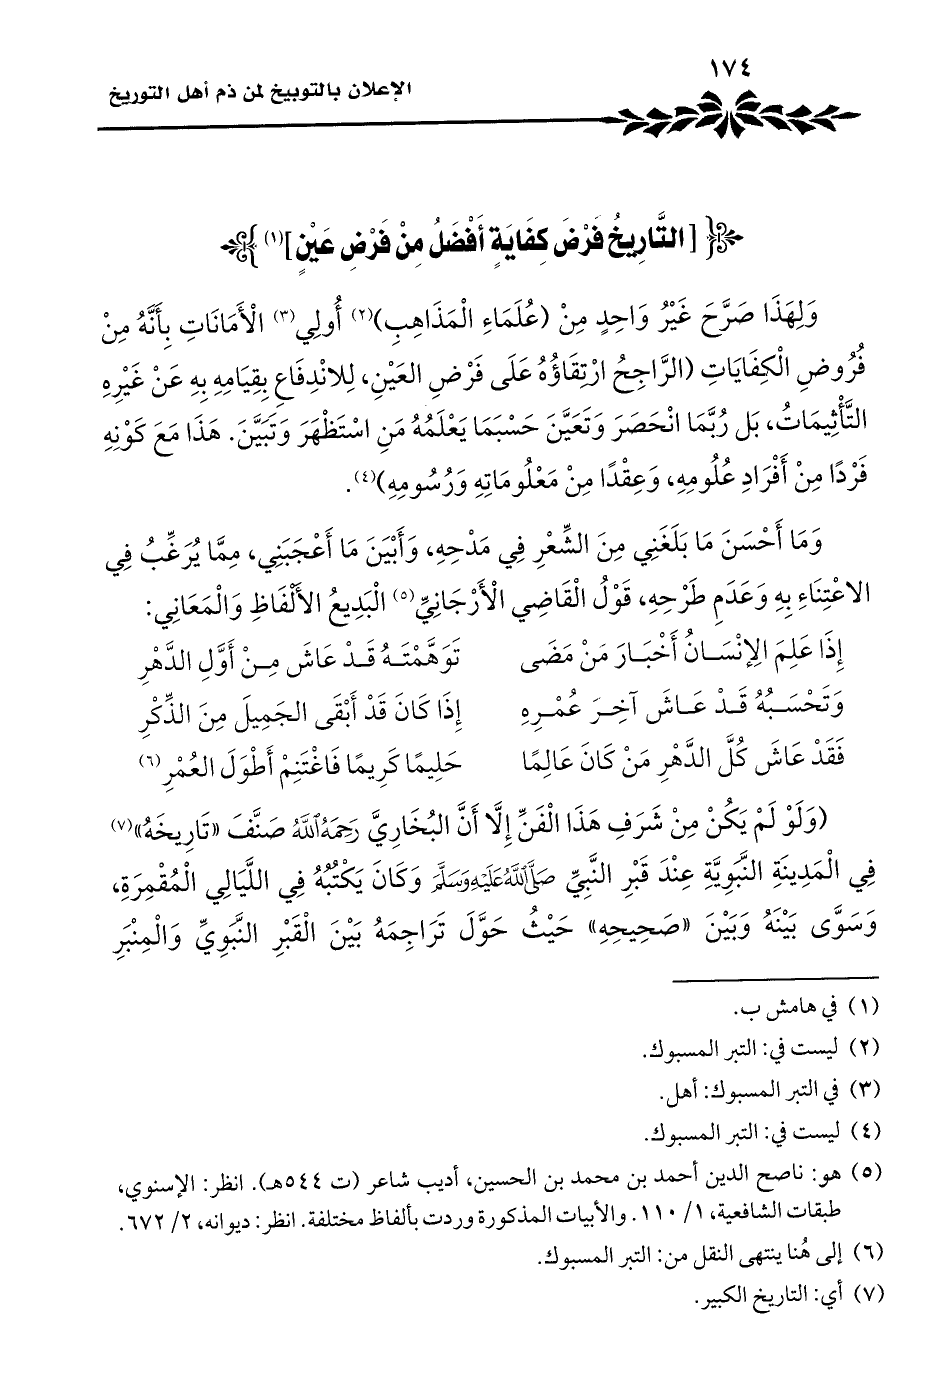 ١٧٤
الإعلان بالتوبيخ لمن ذم أهل التوريخ
[التَّارِيخُ فَرْضَ كِفَايَةٍ أَفْضَلُ مِنْ فَرْضِ عَيْنٍ](١)
وَلِهَذَا صَرَّحَ غَيْرُ وَاحِدٍ مِنْ (عُلَمَاءِ الْمَذَاهِبِ)(٢) أُولِي(٣) الْأَمَانَاتِ بِأَنَّهُ مِنْ
فُرُوضِ الْكِفَايَاتِ (الرَّاجِحُ ارْتِقَاؤُهُ عَلَى فَرْضِ العَيْنِ، لِلانْدِفَاعِ بِقِيَامِهِ بِهِ عَنْ غَيْرِهِ
التَّأْثِيمَاتُ، بَل رُبَّمَا انْحَصَرَ وَتَعَيَّنَ حَسْبَمَا يَعْلَمُهُ مَنِ اسْتَظْهَرَ وَتَبَيَّنَ. هَذَا مَعَ كَوْنِهِ
فَرْدًا مِنْ أَفْرَادِ عُلُومِهِ، وَعِقْدًا مِنْ مَعْلُومَاتِهِ وَرُسُومِهِ)(٤).
وَمَا أَحْسَنَ مَا بَلَغَنِي مِنَ الشِّعْرِ فِي مَدْحِهِ، وَأَبْيَنَ مَا أَعْجَبَنِي، مِمَّا يُرَغِّبُ فِي
الاعْتِنَاءِ بِهِ وَعَدَمِ طَرْحِهِ، قَوْلُ الْقَاضِي الْأَرْجَانِيِّ(٥) الْبَدِيعُ الأَلْفَاظِ وَالْمَعَانِي:
إِذَا عَلِمَ الإِنْسَانُ أَخْبَارَ مَنْ مَضَى تَوَهَّمْتَهُ قَدْ عَاشَ مِنْ أَوَّلِ الدَّهْرِ
وَتَحْسَبُهُ قَدْ عَاشَ آخِرَ عُمْرِهِ إِذَا كَانَ قَدْ أَبْقَى الجَمِيلَ مِنَ الذِّكْرِ
فَقَدْ عَاشَ كُلَّ الدَّهْرِ مَنْ كَانَ عَالِمًا حَلِيمًا كَرِيمًا فَاغْتَنِمْ أَطْوَلَ العُمْرِ(٦)
(وَلَوْ لَمْ يَكُنْ مِنْ شَرَفِ هَذَا الْفَنِّ إِلَّا أَنَّ البُخَارِيَّ رَحِمَهُ اللَّهُ صَنَّفَ «تَارِيخَهُ»(٧)
فِي الْمَدِينَةِ النَّبَوِيَّةِ عِنْدَ قَبْرِ النَّبِيِّ صَلَّى اللَّهُ عَلَيْهِ وَسَلَّمَ وَكَانَ يَكْتُبُهُ فِي اللَّيَالِي الْمُقْمِرَةِ،
وَسَوَّى بَيْنَهُ وَبَيْنَ «صَحِيحِهِ» حَيْثُ حَوَّلَ تَرَاجِمَهُ بَيْنَ الْقَبْرِ النَّبَوِيِّ وَالْمِنْبَرِ
(١) في هامش ب.
(٢) ليست في: التبر المسبوك.
(٣) في التبر المسبوك: أهل.
(٤) ليست في: التبر المسبوك.
(٥) هو: ناصح الدين أحمد بن محمد بن الحسين، أديب شاعر (ت ٥٤٤هـ). انظر: الإسنوي،
طبقات الشافعية، ١/ ١١٠. والأبيات المذكورة وردت بألفاظ مختلفة. انظر: ديوانه، ٢/ ٦٧٢.
(٦) إلى هُنا ينتهى النقل من: التبر المسبوك.
(٧) أي: التاريخ الكبير.